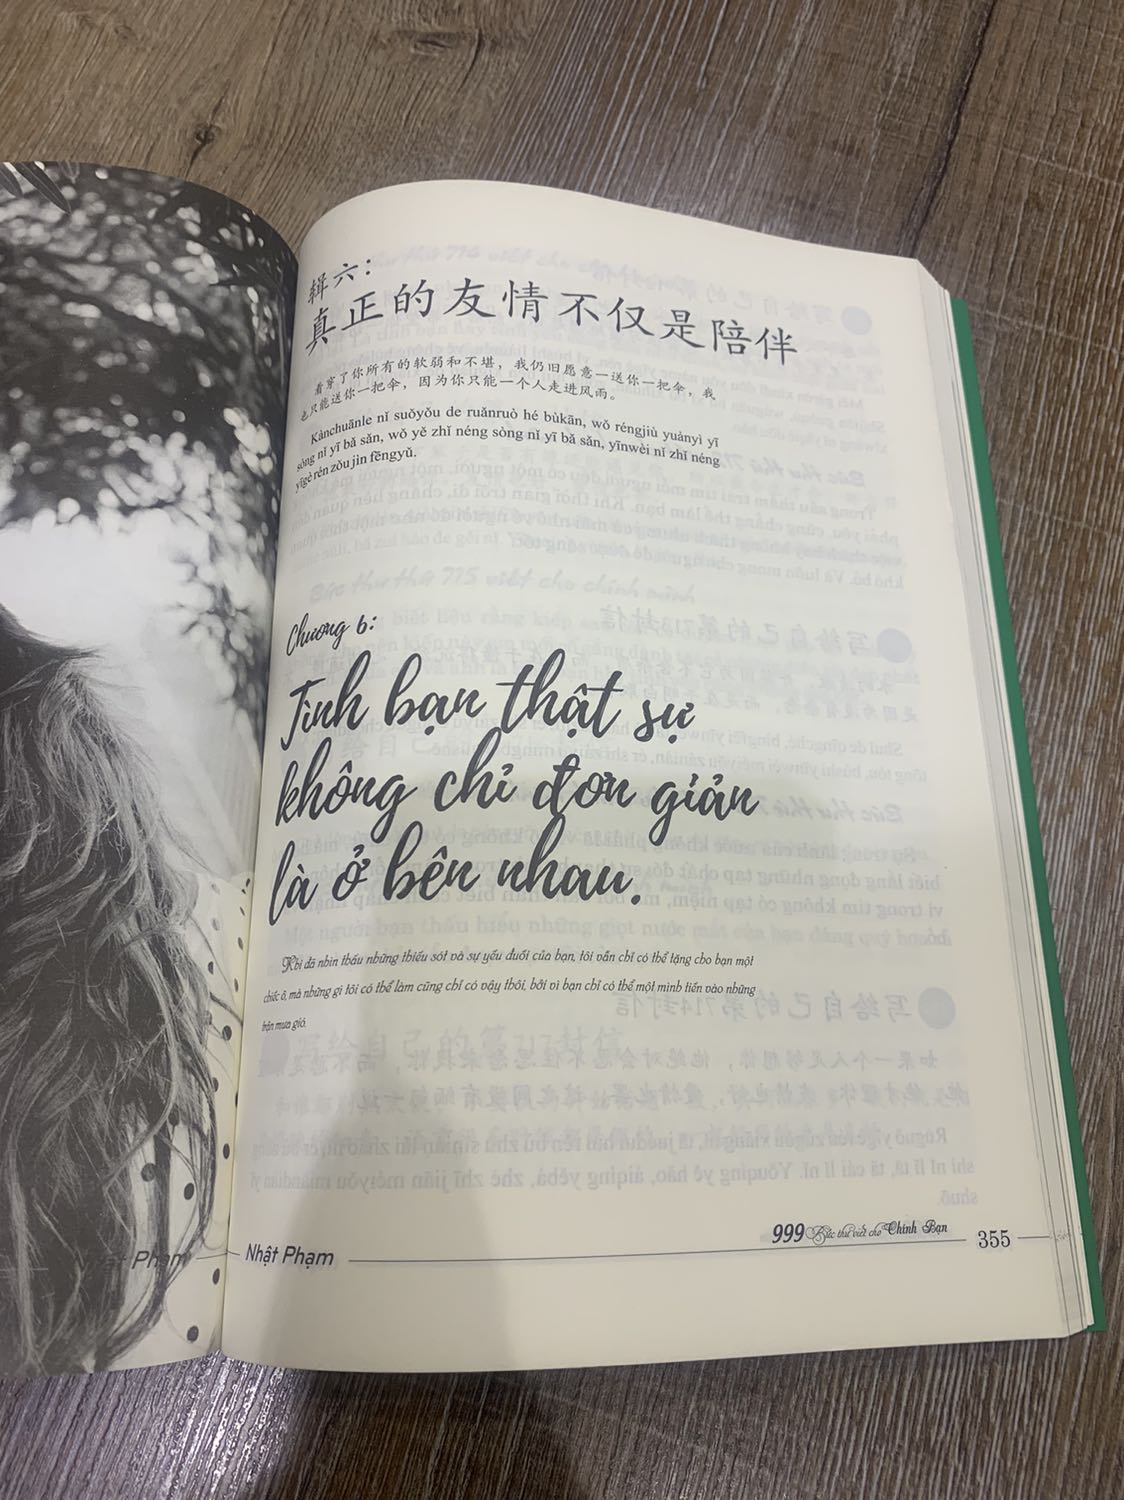 辑六：
真正的友情不仅是陪伴
看穿了你所有的软弱和不堪，我仍旧愿意一送你一把伞，我
也只能送你一把伞，因为你只能一个人走进风雨。
Kànchuānle nǐ suǒyǒu de ruǎnruò hé bùkān, wǒ réngjiù yuànyì yī
sòng nǐ yī bǎ sǎn, wǒ yě zhǐ néng sòng nǐ yī bǎ sǎn, yīnwèi nǐ zhǐ néng
yīgè rén zǒu jìn fēngyǔ.
Chương 6:
Tình bạn thật sự
không chỉ đơn giản
là ở bên nhau.
Khi đã nhìn thấu những thiếu sót và sự yếu đuối của bạn, tôi vẫn chỉ có thể tặng cho bạn một
chiếc ô, mà những gì tôi có thể làm cũng chỉ có vậy thôi, bởi vì bạn chỉ có thể một mình tiến vào những
trận mưa gió.
Nhật Phạm
999 Bức thư viết cho Chính Bạn
355